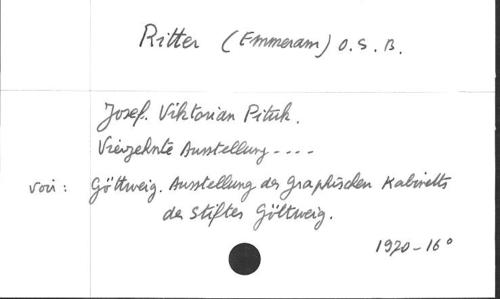 Ritter (Emmeram) O.S.B.
Josef Viktorian Pituk.
Vierzehnte Ausstellung ----
voir : Göttweig. Ausstellung des graphischen Kabinetts
des Stiftes Göttweig.
1970-16°